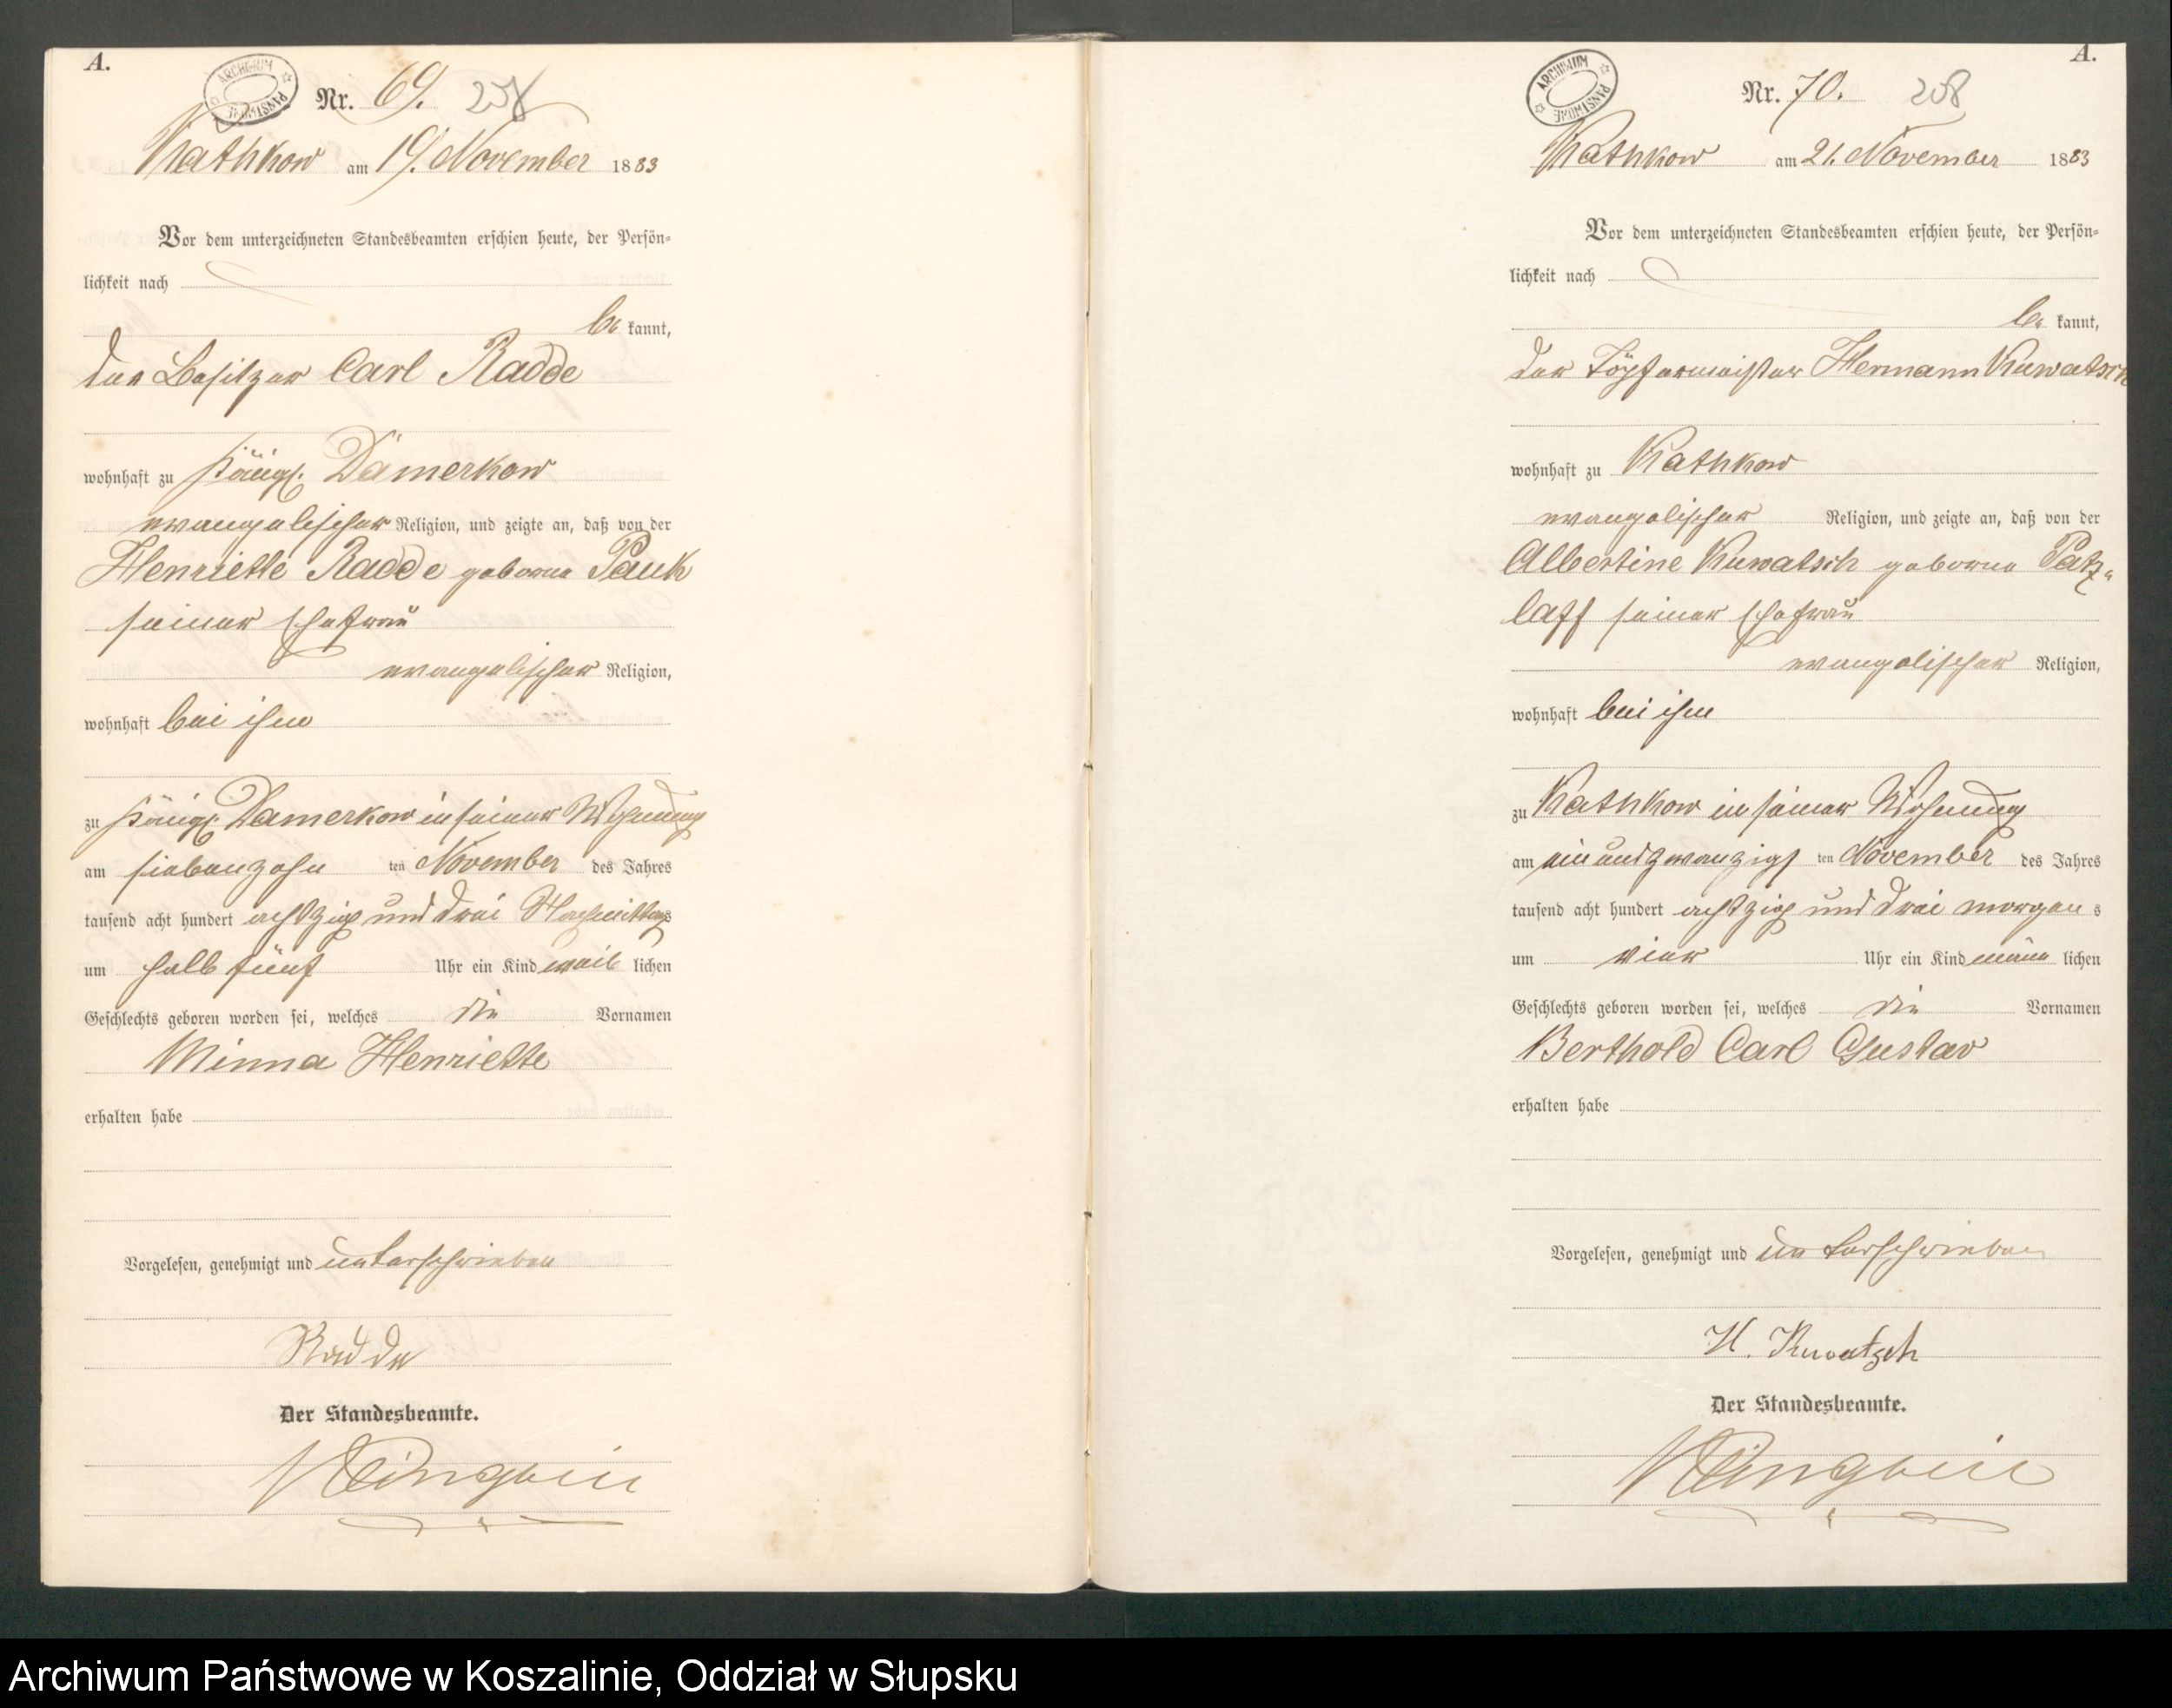 A.
ARCHIWUM PAŃSTWOWE
Nr. 69. 258
Kathkow am 19. November 1883
Vor dem unterzeichneten Standesbeamten erschien heute, der Persön-
lichkeit nach
be kannt,
der Besitzer Carl Radde
wohnhaft zu Königl. Damerkow
evangelischer Religion, und zeigte an, daß von der
Henriette Radde geborne Pauk
seiner Ehefrau
evangelischer Religion,
wohnhaft bei ihm
zu Königl. Damerkow in seiner Wohnung
am siebenzehn ten November des Jahres
tausend acht hundert achtzig und drei Nachmittags
um halb fünf Uhr ein Kind weib lichen
Geschlechts geboren worden sei, welches die Vornamen
Minna Henriette
erhalten habe
Vorgelesen, genehmigt und unterschrieben
Radde
Der Standesbeamte.
A.
ARCHIWUM PAŃSTWOWE
Nr. 70. 258
Kathkow am 21. November 1883
Vor dem unterzeichneten Standesbeamten erschien heute, der Persön-
lichkeit nach
be kannt,
der Töpfermeister Hermann Kuwatsch
wohnhaft zu Kathkow
evangelischer Religion, und zeigte an, daß von der
Albertine Kuwatsch geborne Patz-
laff seiner Ehefrau
evangelischer Religion,
wohnhaft bei ihm
zu Kathkow in seiner Wohnung
am einundzwanzigs ten November des Jahres
tausend acht hundert achtzig und drei morgen s
um vier Uhr ein Kind männ lichen
Geschlechts geboren worden sei, welches die Vornamen
Berthold Carl Gustav
erhalten habe
Vorgelesen, genehmigt und unterschrieben
H. Kuwatsch
Der Standesbeamte.
Archiwum Państwowe w Koszalinie, Oddział w Słupsku